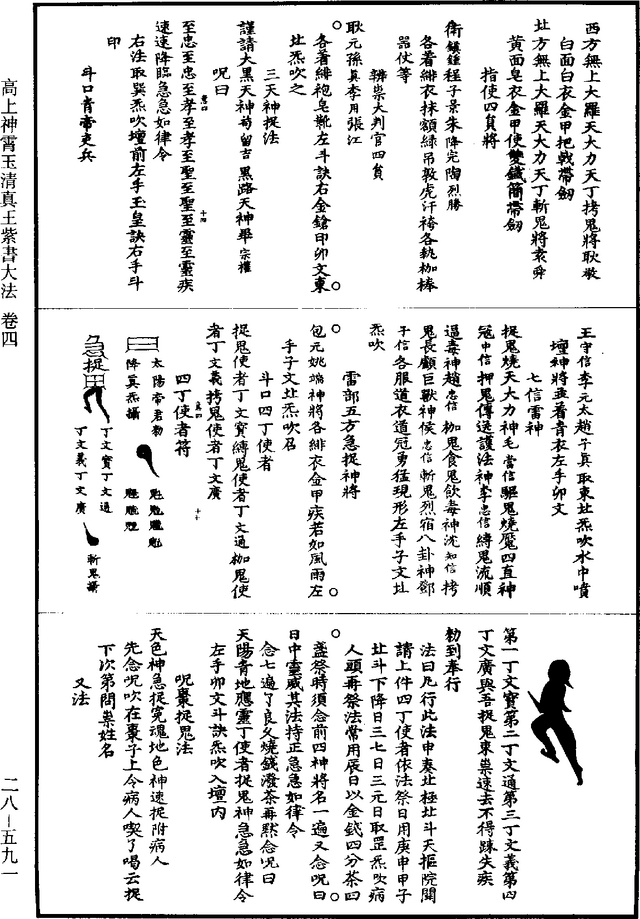 西方無上大羅天大力天丁拷鬼將耿妝
白面白衣金甲把戟帶劒
北方無上大羅天大力天丁斬鬼將袁舜
黃面皂衣金甲使雙鐵簡帶劒
指使四員將
衛鎮鍾程子景朱降完陶烈勝
各著緋衣抹額緑吊敦虎汗袴各執枷棒
器仗等
辨祟大判官四員
耿元孫真李月張江
各著緋袍皂靴左斗訣右金鎗印卯文東
北炁吹之
三天神捉法
謹請大黑天神荀留吉黑路天神畢宗權
呪曰
至忠至忠至孝至孝至聖至聖至靈至靈疾
速速降臨急急如律令
右法取巽炁吹壇前左手玉皇訣右手斗
印
斗口青帝吏兵
王守信李元太趙子真取東北炁吹水中噴
壇紳將並著青衣左手卯文
七信雷神
捉鬼燒天大力神毛當信驅鬼燒魘四直神
冠中信押鬼傳送護法神李忠信縛鬼流順
逼毒神趙忠信枷鬼食鬼飲毒神沈知信拷
鬼長顧巨獸神侯忠信斬鬼烈宿八卦神鄧
子信各服道衣道冠勇猛現形左手子文北
炁吹
雷部五方急捉神將
包元姚端神將各緋衣金甲疾若如風雨左
手子文北炁吹召
斗口四丁使者
捉鬼使者丁文寶縛鬼使者丁文通枷鬼使
者丁文義拷鬼使者丁文廣
四丁使者符
太陽帝君勅
降真炁攝
急捉
丁文寶丁文通
丁文義丁文廣
斬鬼攝
第一丁文寶第二丁文通第三丁文義第四
丁文廣與吾捉鬼束祟速去不得踈失疾
勅到奉行
法曰凡行此法申奏北極北斗天樞院關
請上件四丁使者依法祭日用庚申甲子
北斗下降日三七日三元日取罡炁吹病
人頭再祭法常用辰日以金錢四分茶四
盞祭時須念前四神將名一遍又念呪曰
日中靈威其法持正急急如律令
念七遍了良久燒錢潑茶再黙念呪曰
天陽青地應靈丁使者捉鬼神急急如律令
左手卯文斗訣炁吹入壇内
呪棗捉鬼法
天色神急捉冤魂地色神速捉附病人
先念呪吹在棗子上令病人喫了喝云捉
下次第問祟姓名
又法
高上神霄玉清真王紫書大法 卷四
二八－五九一